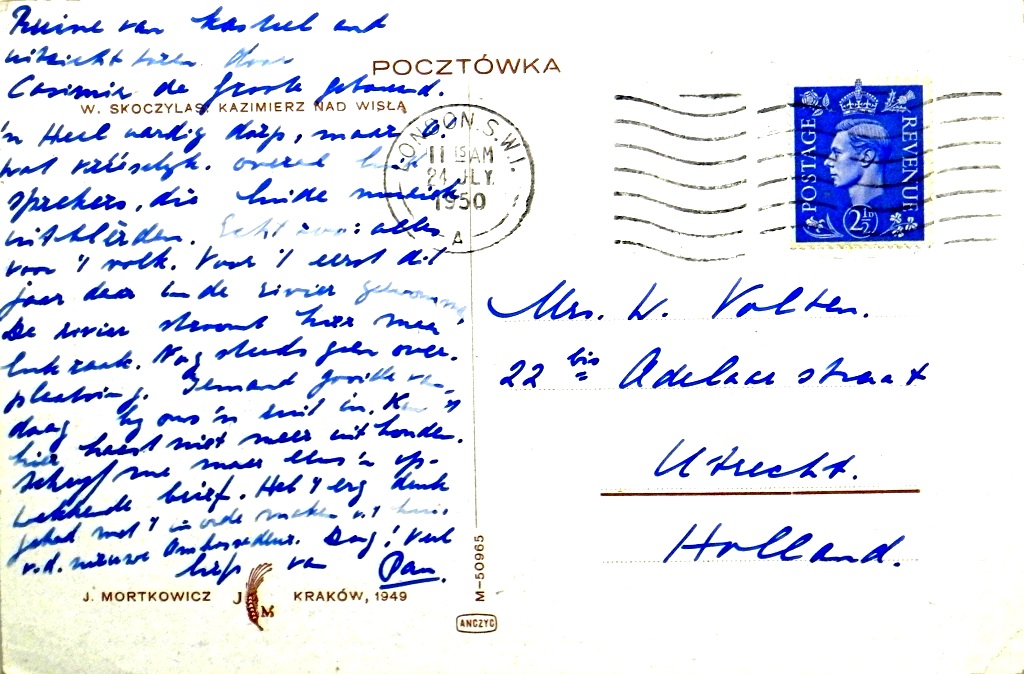 Ruine van kasteel met
uitzicht toren door
Casimir de Groote gebouwd.
POCZTÓWKA
W. SKOCZYLAS, KAZIMIERZ NAD WISŁĄ
'n Heel aardig dorp, maar
wat vreeselijk. overal
sprekers, die luide muziek
uitblèrden. Echt zoo: alles
voor 't volk. Voor 't eerst dit
jaar daar in de rivier gezwommen.
De rivier stroomt hier maar
lukraak. Nog steeds geen over-
plaatsing. Iemand gooide van-
daag bij ons 'n ruit in. Kan 't
hier haast niet meer uithouden.
Schrijf me maar eens 'n op-
wekkende brief. Heb 't erg druk
gehad met 't in orde maken v. 't huis
v.d. nieuwe Ambassadeur. Dag! Veel
liefs van Pam.
LONDON. S.W.1.
11 15 AM
24 JLY
1950
A
POSTAGE REVENUE
2½D
Mrs. W. Volten.
22 bis Adelaarstraat
Utrecht.
Holland.
J. MORTKOWICZ J M KRAKÓW, 1949
M-50965
ANCZYC